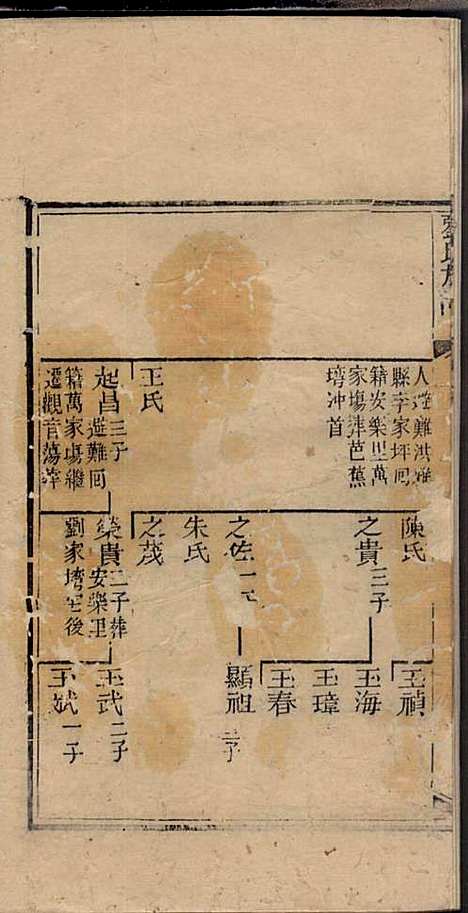 劉氏族
人避難洪雅
縣李家坪回
籍安樂里萬
家塲葬芭蕉
塆沖首
王氏
起昌三子
避難回
籍萬家塲繼
遷觀音蕩葬
陳氏
之貴三子
之佐一子
朱氏
之茂
榮貴二子葬
安樂里
劉家塆宅後
玉禎
玉海
玉瑋
玉春
顯祖二子
玉武二子
玉斌一子